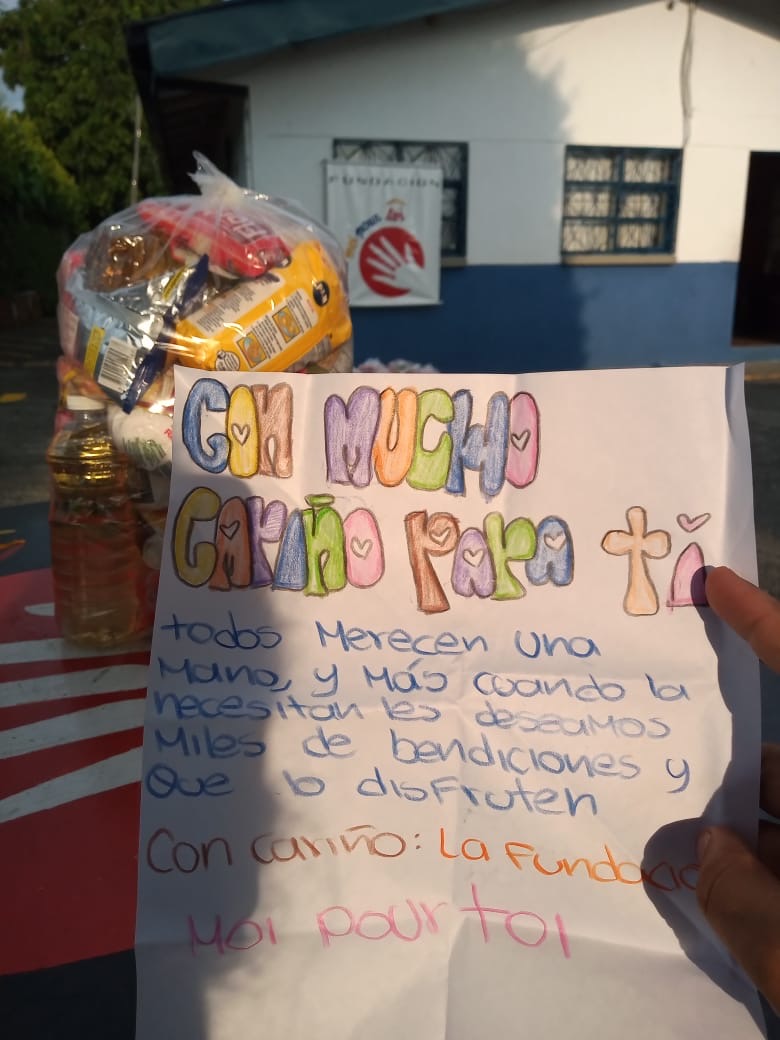 FUNDACION
CON MUCHO
CARIÑO PARA ti
todos Merecen una
Mano, y Más cuando la
necesitan les deseamos
Miles de bendiciones y
Que lo disfruten
Con cariño: La Fundació
Moi pour toi